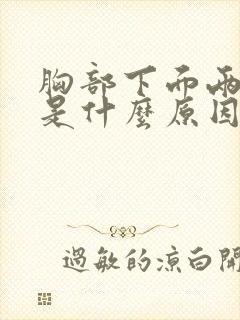 胸部下而兩
是什麼原因
過敏的涼白開